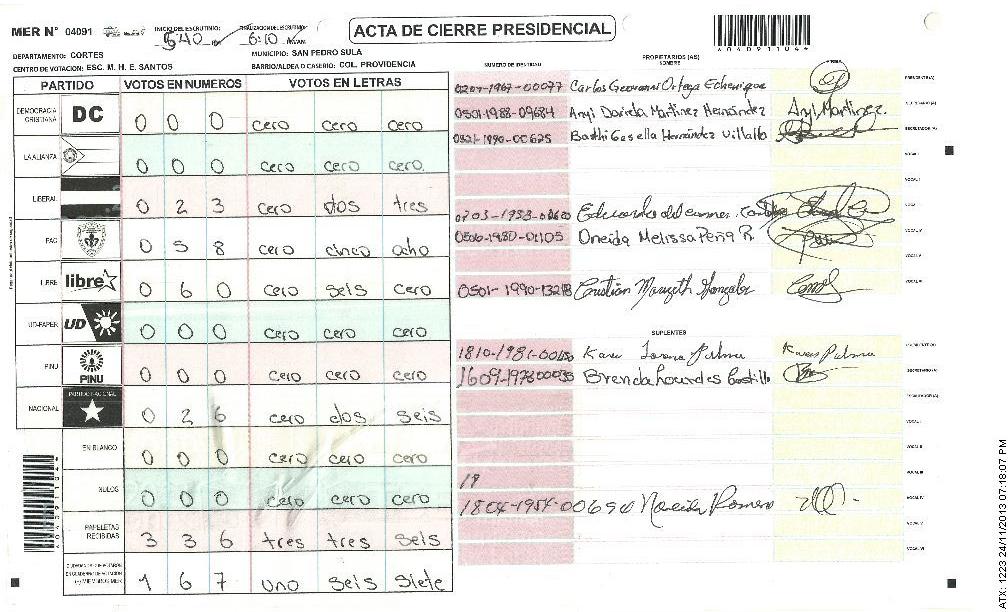 MER N° 04091
INICIO DEL ESCRUTINIO:
5:40
FINALIZACION DEL ESCRUTINIO:
6:10
ACTA DE CIERRE PRESIDENCIAL
4040911044
DEPARTAMENTO: CORTES
MUNICIPIO: SAN PEDRO SULA
CENTRO DE VOTACION: ESC. M. H. E. SANTOS
BARRIO/ALDEA O CASERIO: COL. PROVIDENCIA
PARTIDO VOTOS EN NUMEROS VOTOS EN LETRAS
DEMOCRACIA CRISTIANA DC 0 0 0 cero cero cero
LA ALIANZA 0 0 0 cero cero cero
LIBERAL 0 2 3 cero dos tres
PAC 0 5 8 cero cinco ocho
LIBRE libre 0 6 0 cero seis cero
UD-FAPER UD 0 0 0 cero cero cero
PINU PINU 0 0 0 cero cero cero
NACIONAL PARTIDO NACIONAL 0 2 6 cero dos seis
EN BLANCO 0 0 0 cero cero cero
NULOS 0 0 0 cero cero cero
PAPELETAS RECIBIDAS 3 3 6 tres tres seis
1 6 7 uno seis siete
NUMERO DE IDENTIDAD
PROPIETARIOS (AS)
NOMBRE
Carlos Geovanni Ortega Echenique
PRESIDENTE(A)
0501-1988-09684 Anyi Daniela Martinez Hernández Anyi Martinez.
SECRETARIO (A)
Hernández Villalta
ESCRUTADOR (A)
VOCAL I
Eduardo del carmen
Oneida Melissa Peña R.
Cristian
SUPLENTES
Karen Lorena Palma Karen Palma
Brenda Lourdes Castillo
SECRETARIO (A)
ESCRUTADOR (A)
VOCAL I
VOCAL II
VOCAL III
18
1804-1954-00690 Romero
VOCAL IV
VOCAL V
VOCAL VI
ATX: 1223 24/11/2013 07:18:07 PM